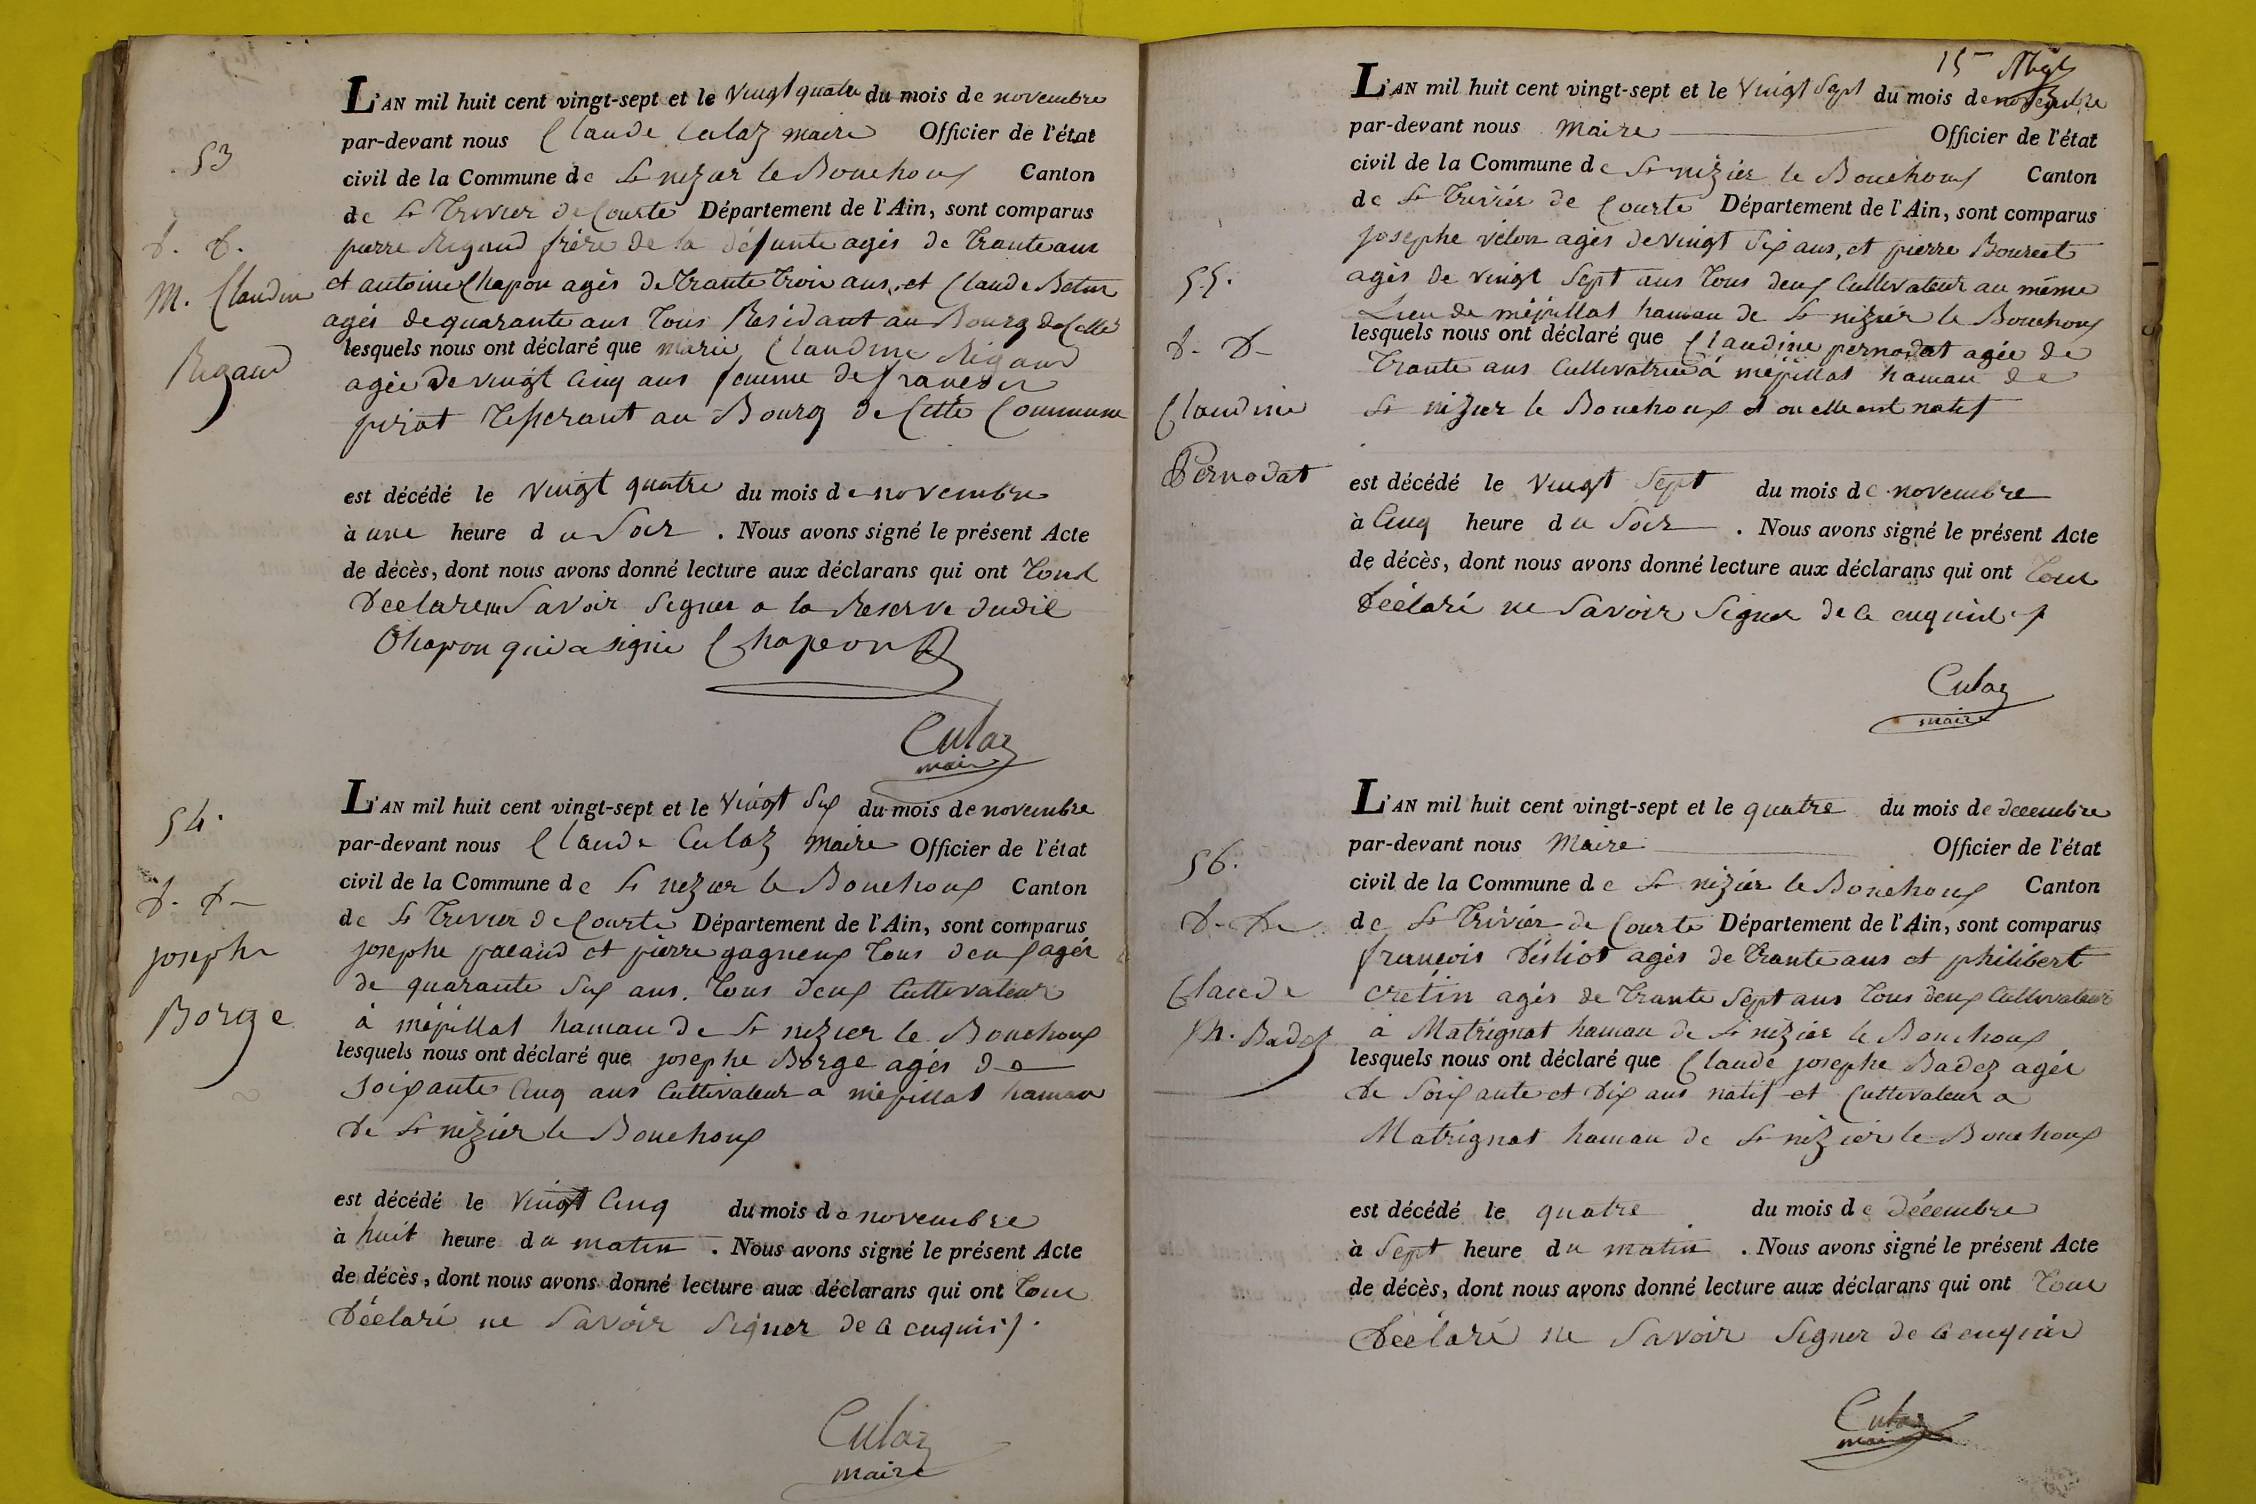 53
D. D.
M. Claudine
Rigaud
L'AN mil huit cent vingt-sept et le vingt quatre du mois de novembre
par-devant nous Claude Culaz maire Officier de l'état
civil de la Commune de St nizier le Bouchoux Canton
de St Trivier de Courte Département de l'Ain, sont comparus
pierre Rigaud frère de la défunte agés de Trante ans
et antoine Chapon agés de Trante Trois ans, et Claude
agés de quarante ans Tous Residant au Bourg de Cette
lesquels nous ont déclaré que marie Claudine Rigaud
agée de vingt Cinq ans femme de francois
au Bourg de Cette Commune
est décédé le vingt quatre du mois de novembre
à une heure du Soir . Nous avons signé le présent Acte
de décès, dont nous avons donné lecture aux déclarans qui ont Tous
Declare ne Savoir Signer a la Reserve dudit
Chapon qui a signé Chapeon
Culaz
maire
54.
D. D
josephe
Borge
L'AN mil huit cent vingt-sept et le vingt Six du mois de novembre
par-devant nous Claude Culaz maire Officier de l'état
civil de la Commune de St nezier le Bouchoux Canton
de St Trivier de Courte Département de l'Ain, sont comparus
josephe pacaud et pierre gagneux Tous deux agés
de quarante Six ans. Tous deux Cultivateur
à mépillat hamau de St nezier le Bouchoux
lesquels nous ont déclaré que josephe Borge agés de
soixante Cinq ans Cultivateur a mépillat hamau
de St nézier le Bouchoux
est décédé le vingt Cinq du mois de novembre
à huit heure du matin . Nous avons signé le présent Acte
de décès, dont nous avons donné lecture aux déclarans qui ont Tous
Déclaré ne Savoir Signer de ce enquis
Culaz
maire
15
55.
D. D
Claudine
Pernodat
L'AN mil huit cent vingt-sept et le vingt Sept du mois de novembre
par-devant nous Maire Officier de l'état
civil de la Commune de St nizier le Bouchoux Canton
de St Trivier de Courte Département de l'Ain, sont comparus
josephe vélon agés de vingt Six ans, et pierre
agés de vingt Sept ans Tous deux Cultivateur au même
Lieu de mépillat hamau de St nizier le Bouchoux
lesquels nous ont déclaré que Claudine pernodat agée de
Trante ans Cultivatrice à mépillat hamau de
St nizier le Bouchoux d ou elle est natif
est décédé le vingt Sept du mois de novembre
à Cinq heure du Soir . Nous avons signé le présent Acte
de décès, dont nous avons donné lecture aux déclarans qui ont Tous
Déclaré ne Savoir Signer de ce enquis
Culaz
maire
56.
D. De
Claude
Jh. Badoz
L'AN mil huit cent vingt-sept et le quatre du mois de decembre
par-devant nous Maire Officier de l'état
civil de la Commune de St nizier le Bouchoux Canton
de St Trivier de Courte Département de l'Ain, sont comparus
francois agés de Trante ans et philibert
cretin agés de Trante Sept ans Tous deux Cultivateur
à Matrignat hamau de St nizier le Bouchoux
lesquels nous ont déclaré que Claude josephe Badoz agés
de Soixante et Dix ans natif et Cultivateur a
Matrignat hamau de St nizier le Bouchoux
est décédé le quatre du mois de décembre
à Sept heure du matin . Nous avons signé le présent Acte
de décès, dont nous avons donné lecture aux déclarans qui ont Tous
Déclaré ne Savoir Signer de ce enquis
Culaz
maire